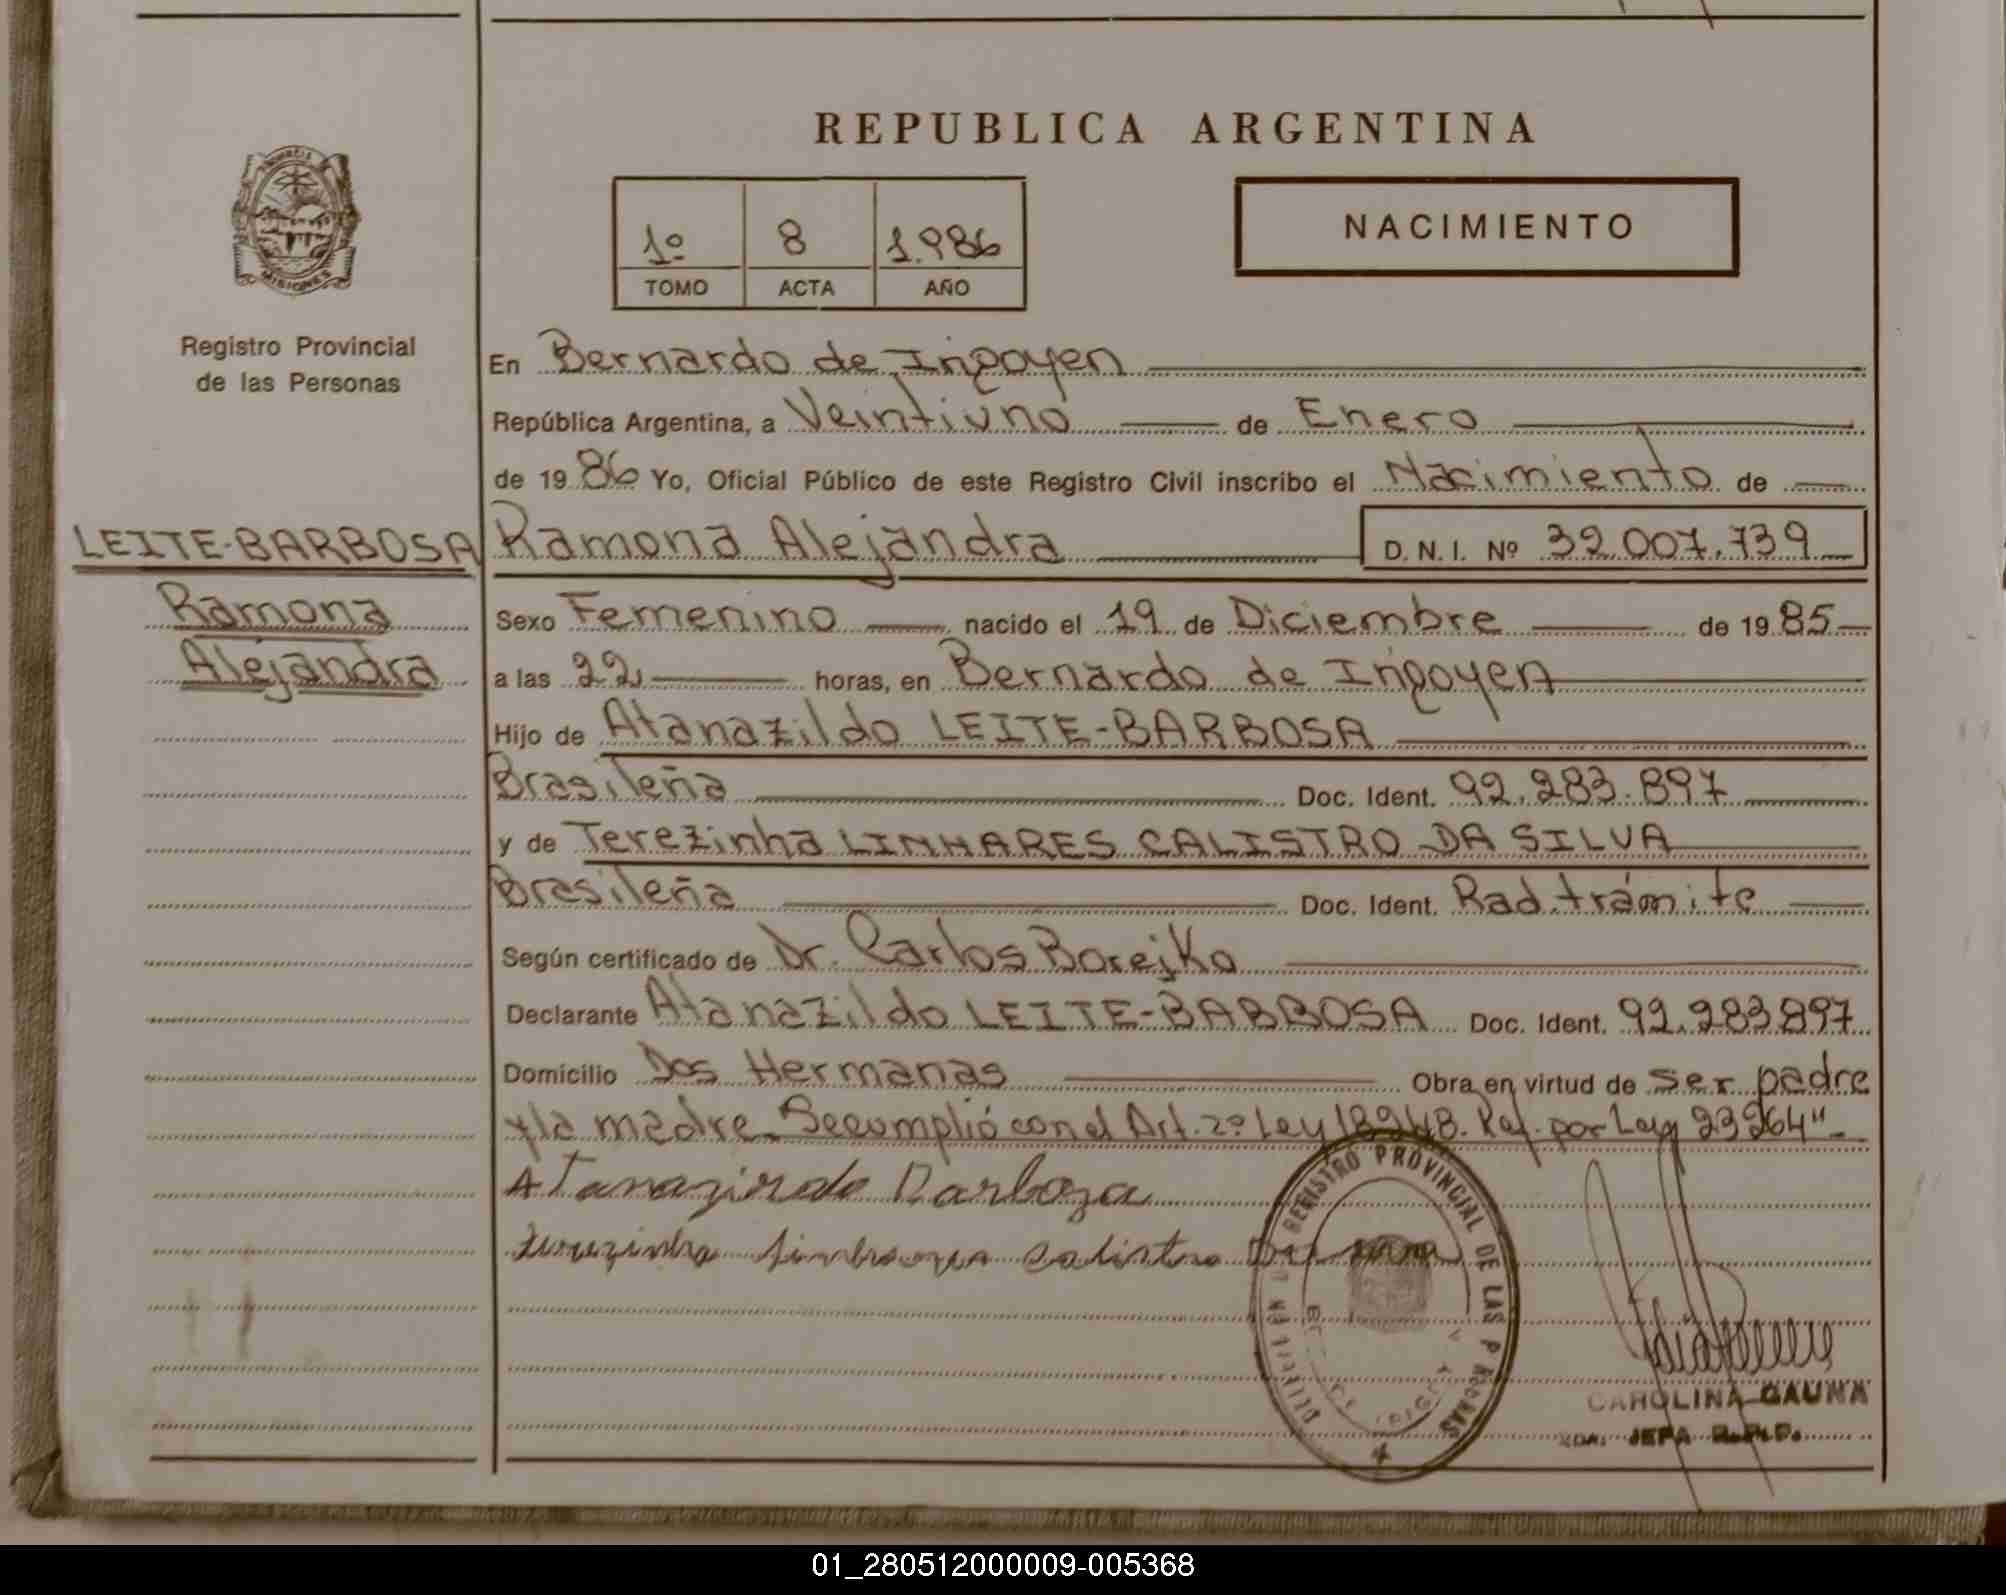 REPUBLICA ARGENTINA
1º 8 1.986
TOMO ACTA AÑO
NACIMIENTO
MISIONES
Registro Provincial
de las Personas
LEITE-BARBOSA
Ramona
Alejandra
En Bernardo de Irigoyen
República Argentina, a Veintiuno de Enero
de 19 86 Yo, Oficial Público de este Registro Civil inscribo el Nacimiento de
Ramona Alejandra D. N. I. Nº 32.007.739
Sexo Femenino nacido el 19 de Diciembre de 19 85
a las 22 horas, en Bernardo de Irigoyen
Hijo de Atanazildo LEITE-BARBOSA
Brasileña Doc. Ident. 92.283.897
y de Terezinha LINHARES CALISTRO DA SILVA
Brasileña Doc. Ident. Rad. trámite
Según certificado de Dr. Carlos Borejko
Declarante Atanazildo LEITE-BARBOSA Doc. Ident. 92.283.897
Domicilio Dos Hermanas Obra en virtud de ser padre
y la madre. Se cumplió con el Art. 2º Ley 18248. Ref. por Ley 23264"
Atanazirdo Barboza
calistro Da
REGISTRO PROVINCIAL DE LAS
CAROLINA GAUNA
JEFA R.P.P.
01_280512000009-005368